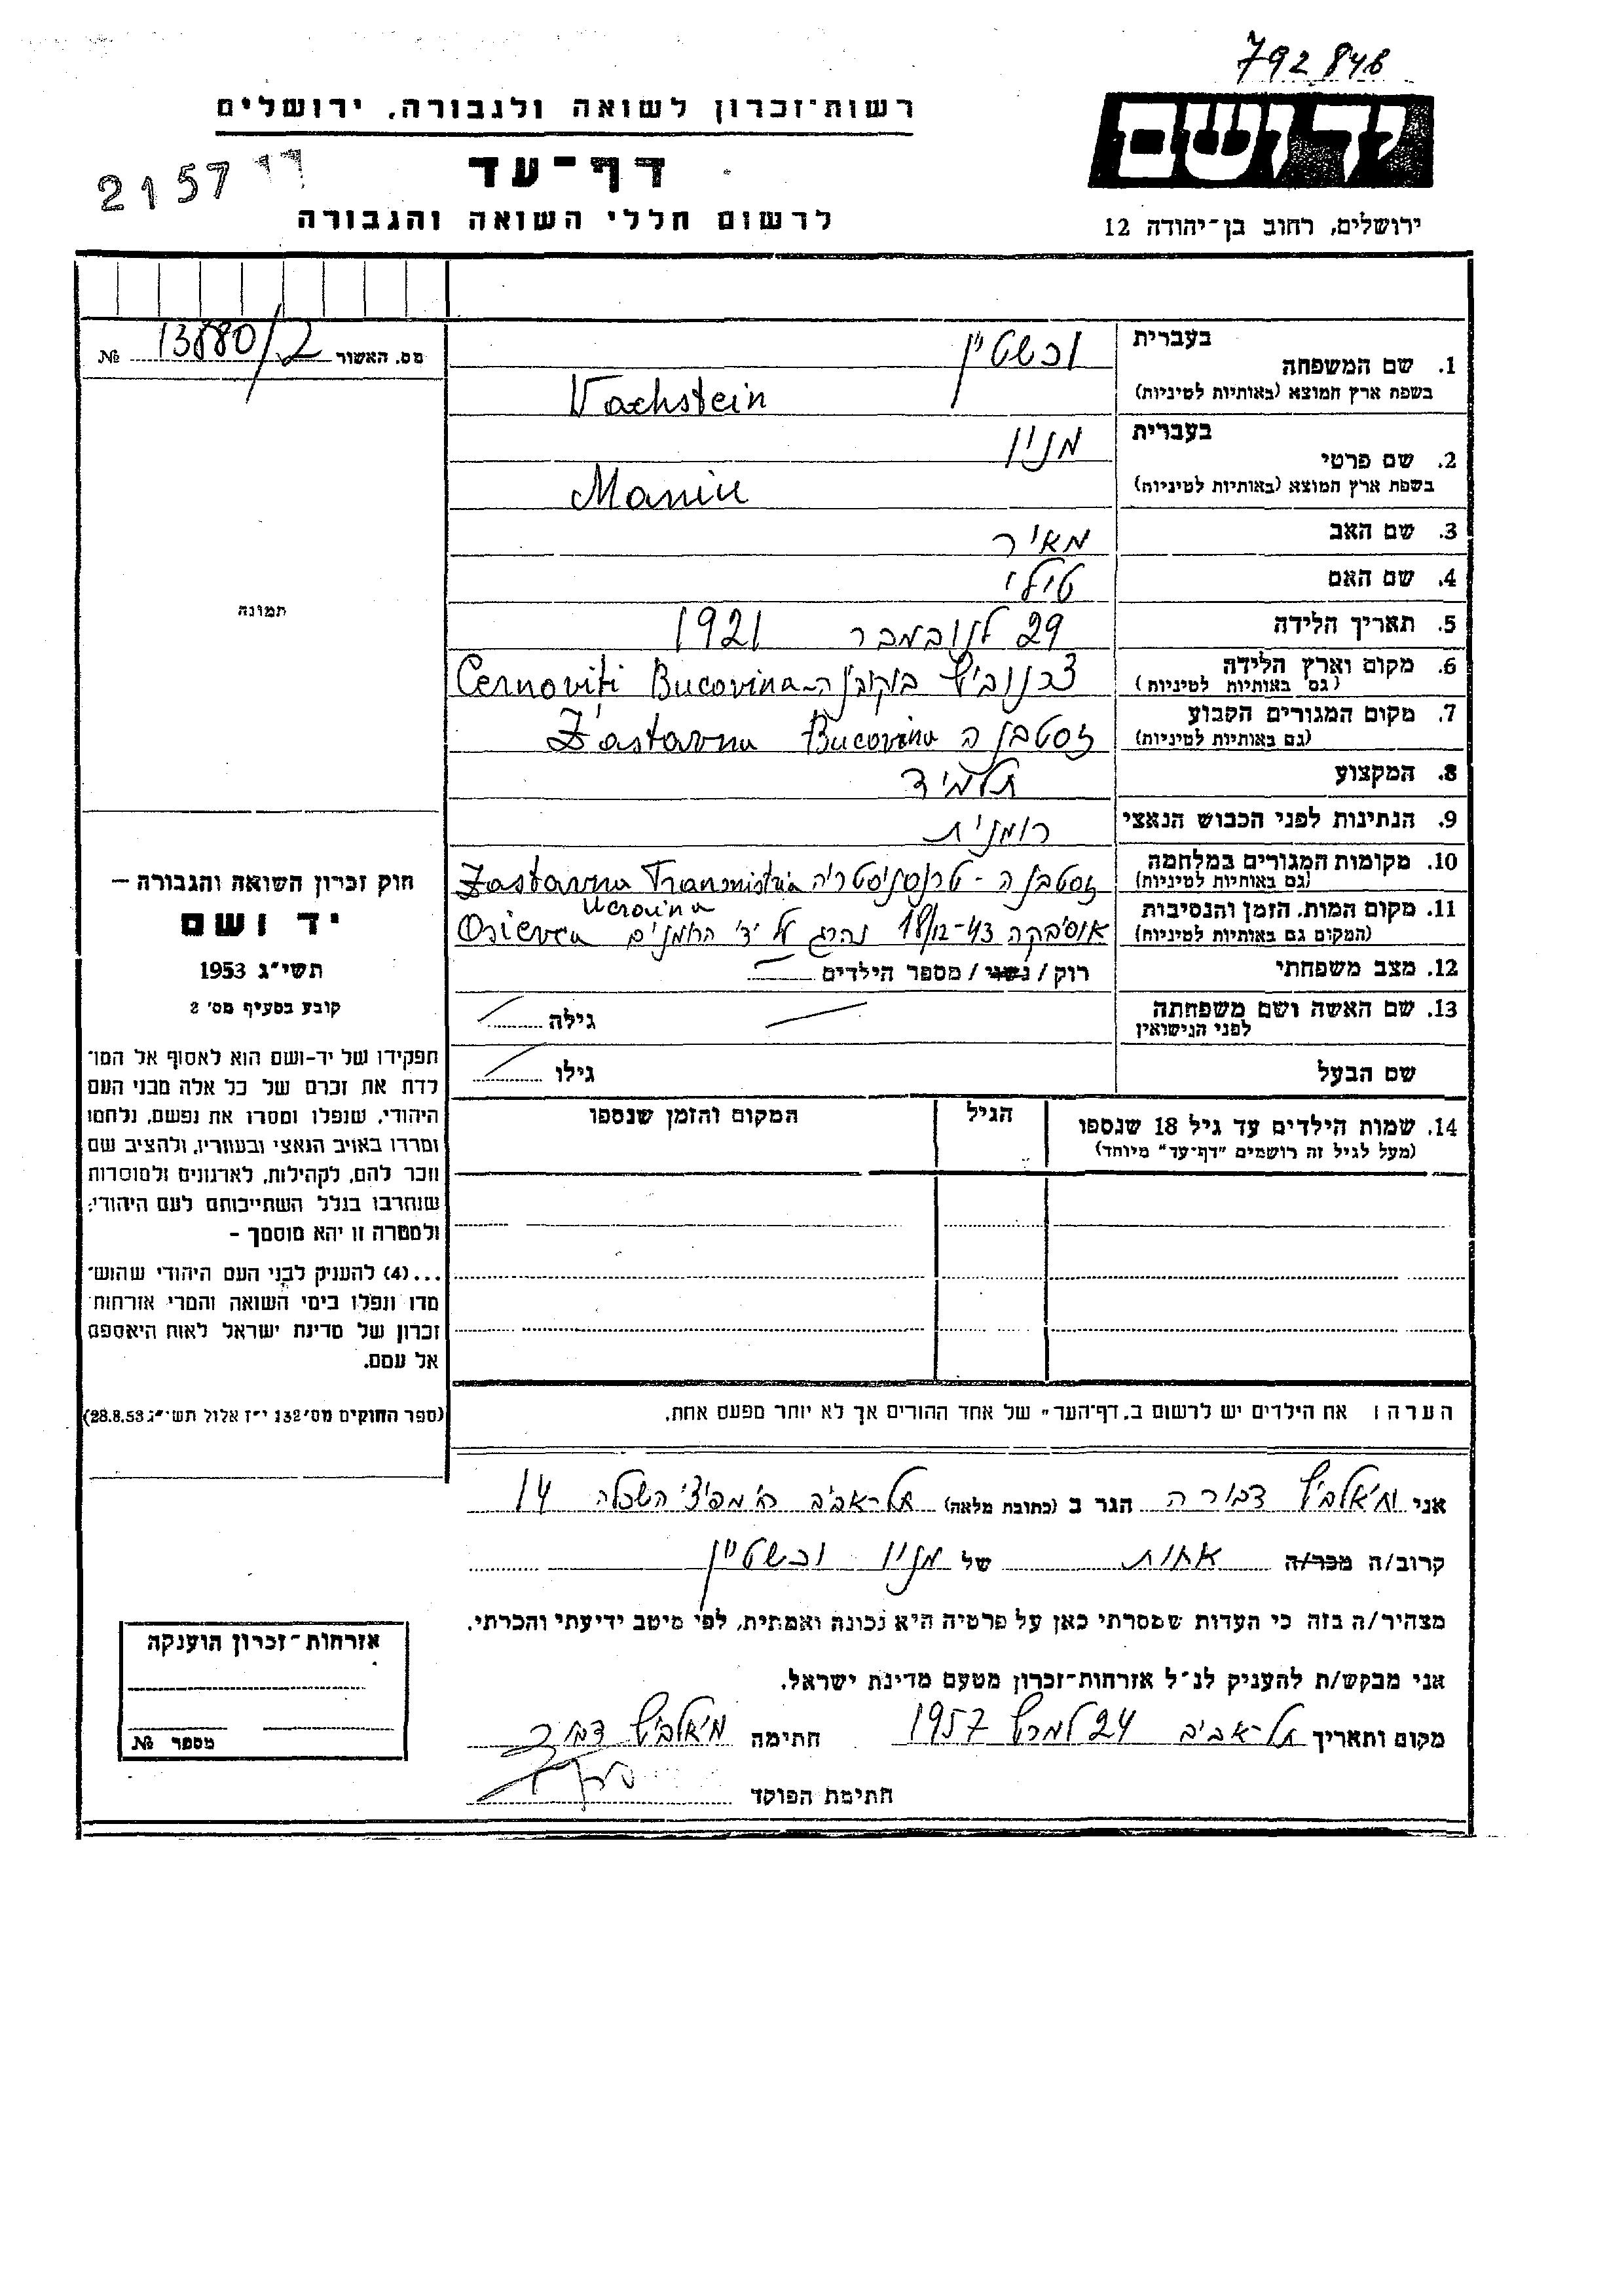 792846
רשות־זכרון לשואה ולגבורה, ירושלים
יד ושם
דף־עד
2157
לרשום חללי השואה והגבורה
ירושלים, רחוב בן־יהודה 12
מס. האשור 13880/2 №
תמונה
1. שם המשפחה בעברית וכשטיין
בשפת ארץ המוצא (באותיות לטיניות) Vachstein
2. שם פרטי בעברית מניו
בשפת ארץ המוצא (באותיות לטיניות) Maniu
3. שם האב מאיר
4. שם האם טילי
5. תאריך הלידה 29 לנובמבר 1921
6. מקום וארץ הלידה (גם באותיות לטיניות) צרנוביץ בוקובינה - Cernoviti Bucovina
7. מקום המגורים הקבוע (גם באותיות לטיניות) זסטבנה Zastavna Bucovina
8. המקצוע תלמיד
9. הנתינות לפני הכבוש הנאצי רומנית
10. מקומות המגורים במלחמה (גם באותיות לטיניות) זסטבנה - טרנסניסטריה Zastavna Transnistria
11. מקום המות, הזמן והנסיבות (המקום גם באותיות לטיניות) אוסיבקה 18/12-43 נהרג על ידי הרומנים Osievca Ucraina
12. מצב משפחתי רוק / נשוי / מספר הילדים
13. שם האשה ושם משפחתה לפני הנישואין גילה
שם הבעל גילו
14. שמות הילדים עד גיל 18 שנספו הגיל המקום והזמן שנספו
(מעל לגיל זה רושמים "דף־עד" מיוחד)
חוק זכרון השואה והגבורה —
יד ושם
תשי"ג 1953
קובע בסעיף מס' 2
תפקידו של יד-ושם הוא לאסוף אל המו־
לדת את זכרם של כל אלה מבני העם
היהודי, שנפלו ומסרו את נפשם, נלחמו
ומרדו באויב הנאצי ובעוזריו, ולהציב שם
וזכר להם, לקהילות, לארגונים ולמוסדות
שנחרבו בגלל השתייכותם לעם היהודי;
ולמטרה זו יהא מוסמך -
...(4) להעניק לבני העם היהודי שהוש־
מדו ונפלו בימי השואה והמרי אזרחות
זכרון של מדינת ישראל לאות היאספם
אל עמם.
(ספר החוקים מס' 132 י"ז אלול תשי"ג 28.8.53)
הערה: את הילדים יש לרשום ב"דף־העד" של אחד ההורים אך לא יותר מפעם אחת.
אני מיאלביץ דבורה הגר ב (כתובת מלאה) תל-אביב רח' מפיצי השכלה 14
קרוב/ה מכר/ה אחות של מניו וכשטיין
מצהיר/ה בזה כי העדות שמסרתי כאן על פרטיה היא נכונה ואמתית, לפי מיטב ידיעתי והכרתי.
אני מבקש/ת להעניק לנ"ל אזרחות־זכרון מטעם מדינת ישראל.
מקום ותאריך תל-אביב 24 למרץ 1957 חתימה מיאלביץ דבורה
חתימת הפוקד
אזרחות־זכרון הוענקה
מספר №